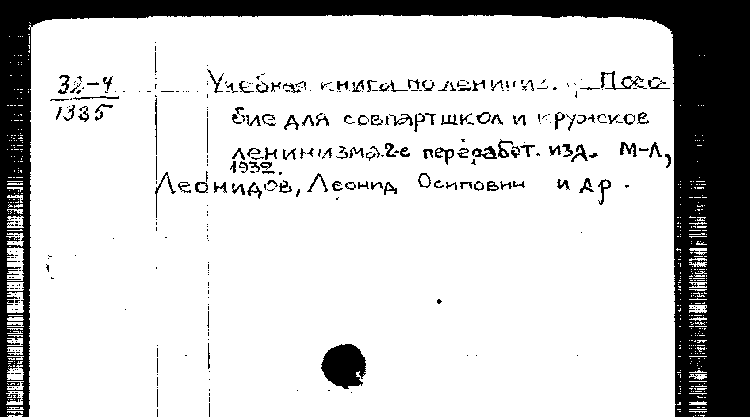 32-4
1335
Учебная книга по ленинизму. Посо-
бие для совпартшкол и кружков
ленинизма. 2-е переработ. изд. М-Л,
1932.
Леонидов, Леонид Осипович и др.